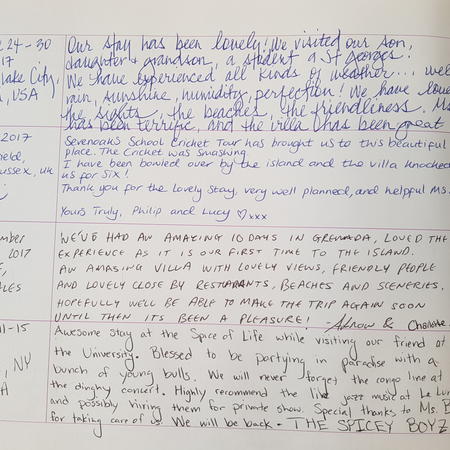 24-30
2017
Lake City,
, USA
Our stay has been lovely! We visited our son,
daughter & grandson, a student @ St Georges.
We have experienced all kinds of weather... wet
rain, sunshine, humidity, perfection! We have loved
the sights, the beaches, the friendliness.
has been terrific, and the villa has been great
2017
field,
Sussex, UK
Sevenoaks School Cricket Tour has brought us to this beautiful
place. The cricket was amazing.
I have been bowled over by the island and the villa knocked
us for six!
Thank you for the lovely stay very well planned and helpful Ms.
Yours Truly, Philip and Lucy xxx
2017
WE'VE HAD AN AMAZING 10 DAYS IN GRENADA. LOVED THE
EXPERIENCE AS IT IS OUR FIRST TIME TO THE ISLAND.
AN AMAZING VILLA WITH LOVELY VIEWS, FRIENDLY PEOPLE
AND LOVELY CLOSE BY RESTAURANTS, BEACHES AND SCENERIES.
HOPEFULLY WE'LL BE ABLE TO MAKE THE TRIP AGAIN SOON
UNTIL THEN ITS BEEN A PLEASURE! &
11-15
, NY
Awesome stay at the Spice of Life while visiting our friend at
the University. Blessed to be partying in paradise with a
bunch of young bulls. We will never forget the conga line at
the dinghy concert. Highly recommend the live jazz music at
and possibly hiring them for private show. Special thanks to Ms.
for taking care of us. We will be back - THE SPICEY BOYZ